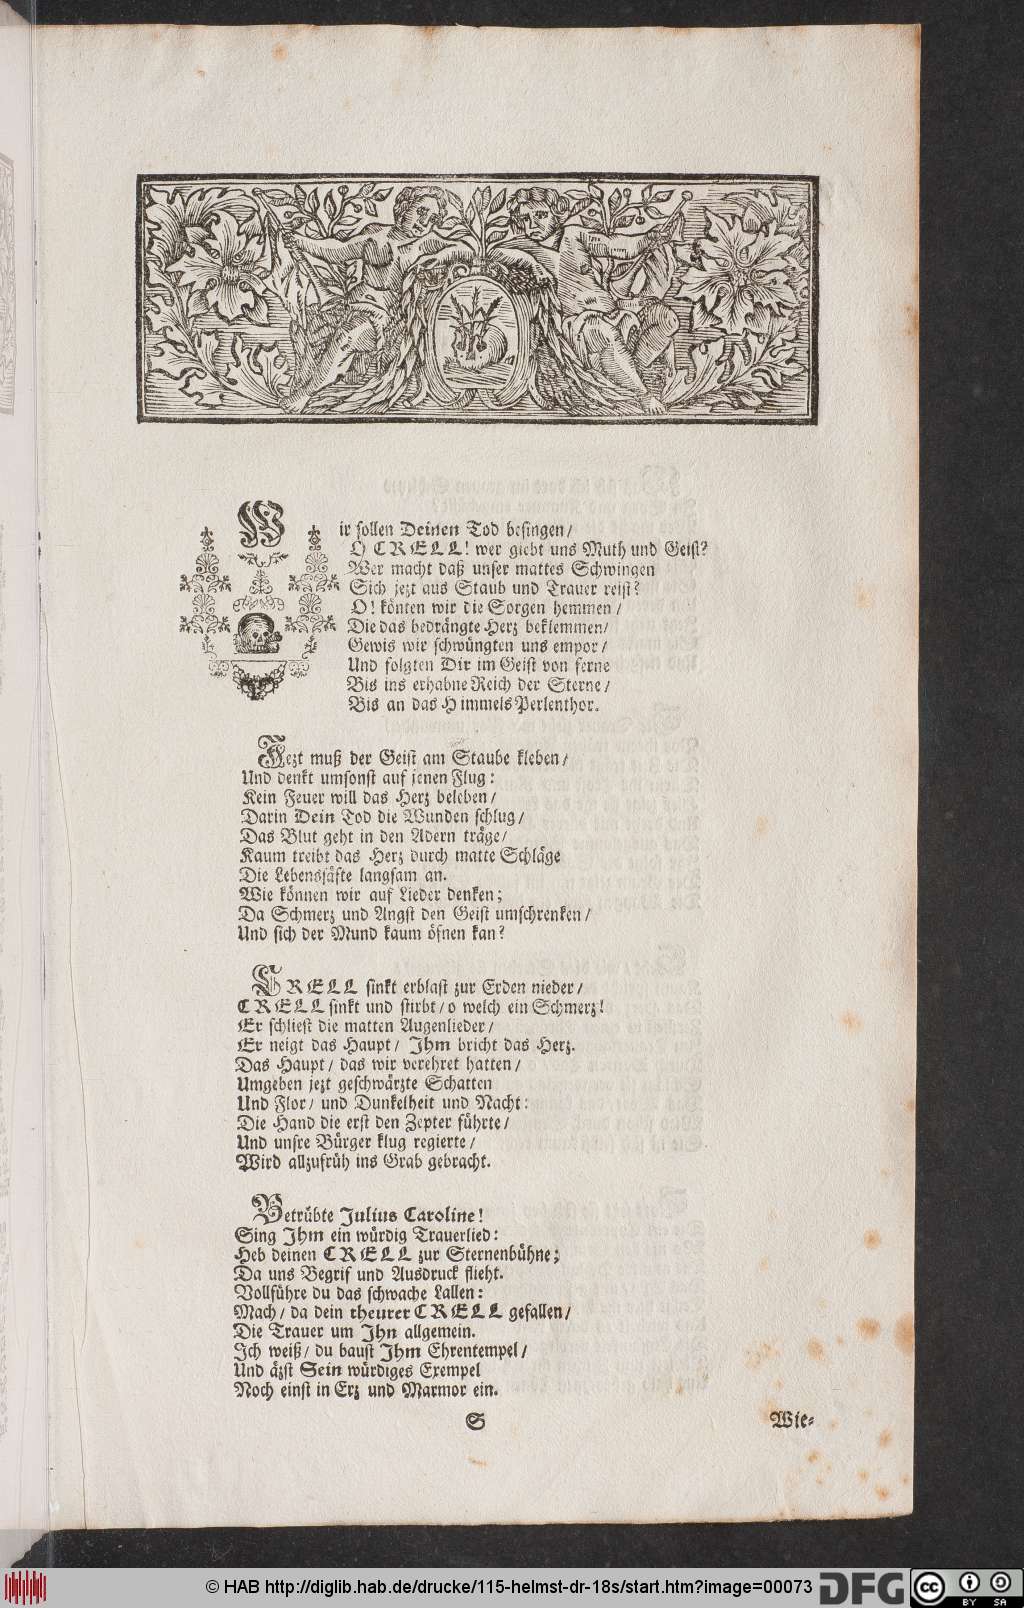 Wir sollen Deinen Tod besingen/
O CRELL! wer giebt uns Muth und Geist?
Wer macht daß unser mattes Schwingen
Sich jezt aus Staub und Trauer reist?
O! könten wir die Sorgen hemmen/
Die das bedrängte Herz beklemmen/
Gewis wir schwüngten uns empor/
Und folgten Dir im Geist von ferne
Bis ins erhabne Reich der Sterne/
Bis an das Himmels Perlenthor.
Jezt muß der Geist am Staube kleben/
Und denkt umsonst auf jenen Flug:
Kein Feuer will das Herz beleben/
Darin Dein Tod die Wunden schlug/
Das Blut geht in den Adern träge/
Kaum treibt das Herz durch matte Schläge
Die Lebenssäfte langsam an.
Wie können wir auf Lieder denken;
Da Schmerz und Angst den Geist umschrenken/
Und sich der Mund kaum öfnen kan?
CRELL sinkt erblast zur Erden nieder/
CRELL sinkt und stirbt/ o welch ein Schmerz!
Er schliest die matten Augenlieder/
Er neigt das Haupt/ Ihm bricht das Herz.
Das Haupt/ das wir verehret hatten/
Umgeben jezt geschwärzte Schatten
Und Flor/ und Dunkelheit und Nacht:
Die Hand die erst den Zepter führte/
Und unsre Bürger klug regierte/
Wird allzufrüh ins Grab gebracht.
Betrübte Julius Caroline!
Sing Ihm ein würdig Trauerlied:
Heb deinen CRELL zur Sternenbühne;
Da uns Begrif und Ausdruck flieht.
Vollführe du das schwache Lallen:
Mach/ da dein theurer CRELL gefallen/
Die Trauer um Ihn allgemein.
Ich weiß/ du baust Ihm Ehrentempel/
Und äzst Sein würdiges Exempel
Noch einst in Erz und Marmor ein.
S Wie-
© HAB http://diglib.hab.de/drucke/115-helmst-dr-18s/start.htm?image=00073 DFG cc BY SA